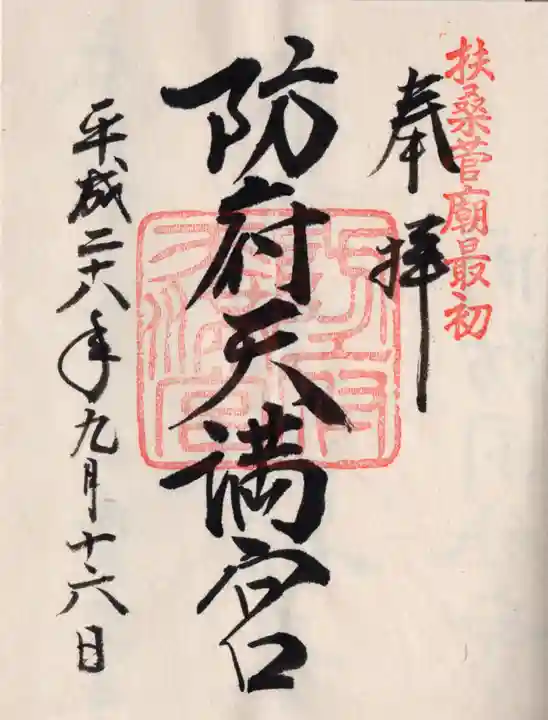 扶桑菅廟最初
奉拝
防府天満宮
平成二十八年九月十六日